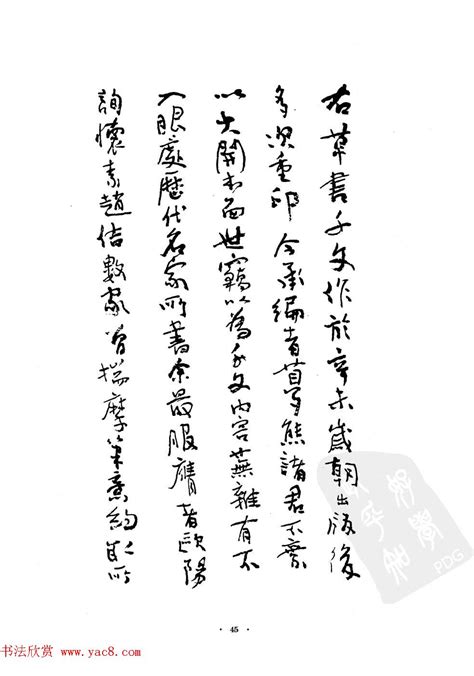 右草書千文作於辛未歲朝出版後
多次重印今承編者葛熊諸君不棄
以大開本面世竊以為千文內容蕪雜有不
入眼處歷代名家所書余最服膺者歐陽
詢懷素趙佶數家曾揣摩筆意約取所
· 45 ·
书法欣赏 www.yac8.com
PDG